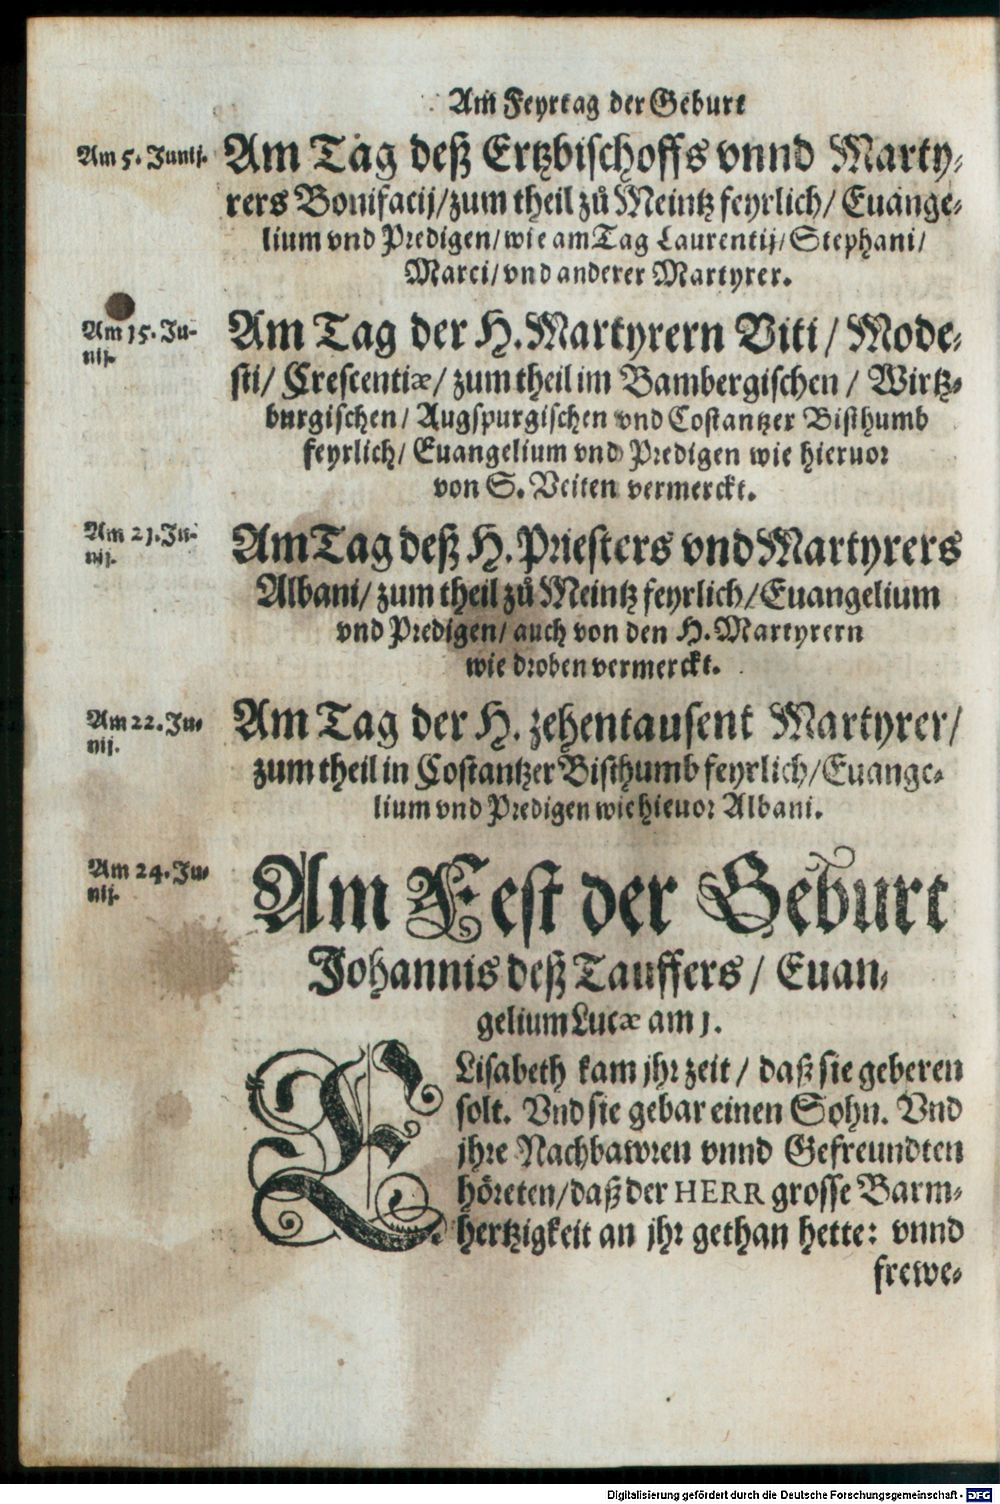 Am Feyrtag der Geburt
Am 5. Junij.
Am Tag deß Ertzbischoffs vnnd Marty-
rers Bonifacij/ zum theil zů Meintz feyrlich/ Euange-
lium vnd Predigen/ wie am Tag Laurentij/ Stephani/
Marci/ vnd anderer Martyrer.
Am 15. Ju-
nij.
Am Tag der H. Martyrern Viti / Mode-
sti/ Crescentiæ/ zum theil im Bambergischen / Wirtz-
burgischen/ Augspurgischen vnd Costantzer Bisthumb
feyrlich/ Euangelium vnd Predigen wie hieruor
von S. Veiten vermerckt.
Am 21. Ju-
nij.
Am Tag deß H. Priesters vnd Martyrers
Albani/ zum theil zů Meintz feyrlich/ Euangelium
vnd Predigen/ auch von den H. Martyrern
wie droben vermerckt.
Am 22. Ju-
nij.
Am Tag der H. zehentausent Martyrer/
zum theil in Costantzer Bisthumb feyrlich/ Euange-
lium vnd Predigen wie hieuor Albani.
Am 24. Ju-
nij.
Am Fest der Geburt
Johannis deß Tauffers / Euan-
gelium Lucæ am 1.
ELisabeth kam jhr zeit / daß sie geberen
solt. Vnd sie gebar einen Sohn. Vnd
jhre Nachbawren vnnd Gefreundten
höreten/ daß der HERR grosse Barm-
hertzigkeit an jhr gethan hette: vnnd
frewe-
Digitalisierung gefördert durch die Deutsche Forschungsgemeinschaft - DFG